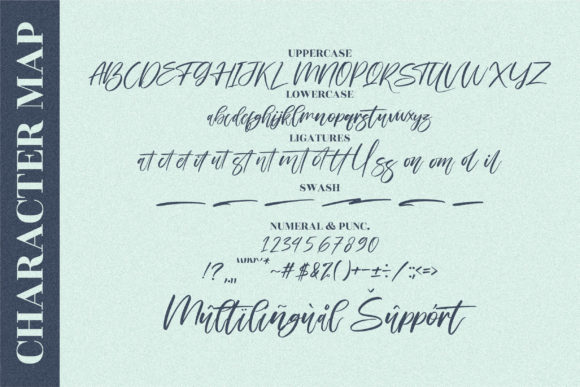 CHARACTER MAP
UPPERCASE
ABCDEFGHIJKL MNOPQRSTUVWXYZ
LOWERCASE
abcdefghijklmnopqrstuvwxyz
LIGATURES
at ct et it ut st nt mt ot tt ll ss on om
SWASH
NUMERAL & PUNC.
1234567890
!?
~#$&%()+-±÷/:;<=>
Mûltïlíñgùål Šûppórt